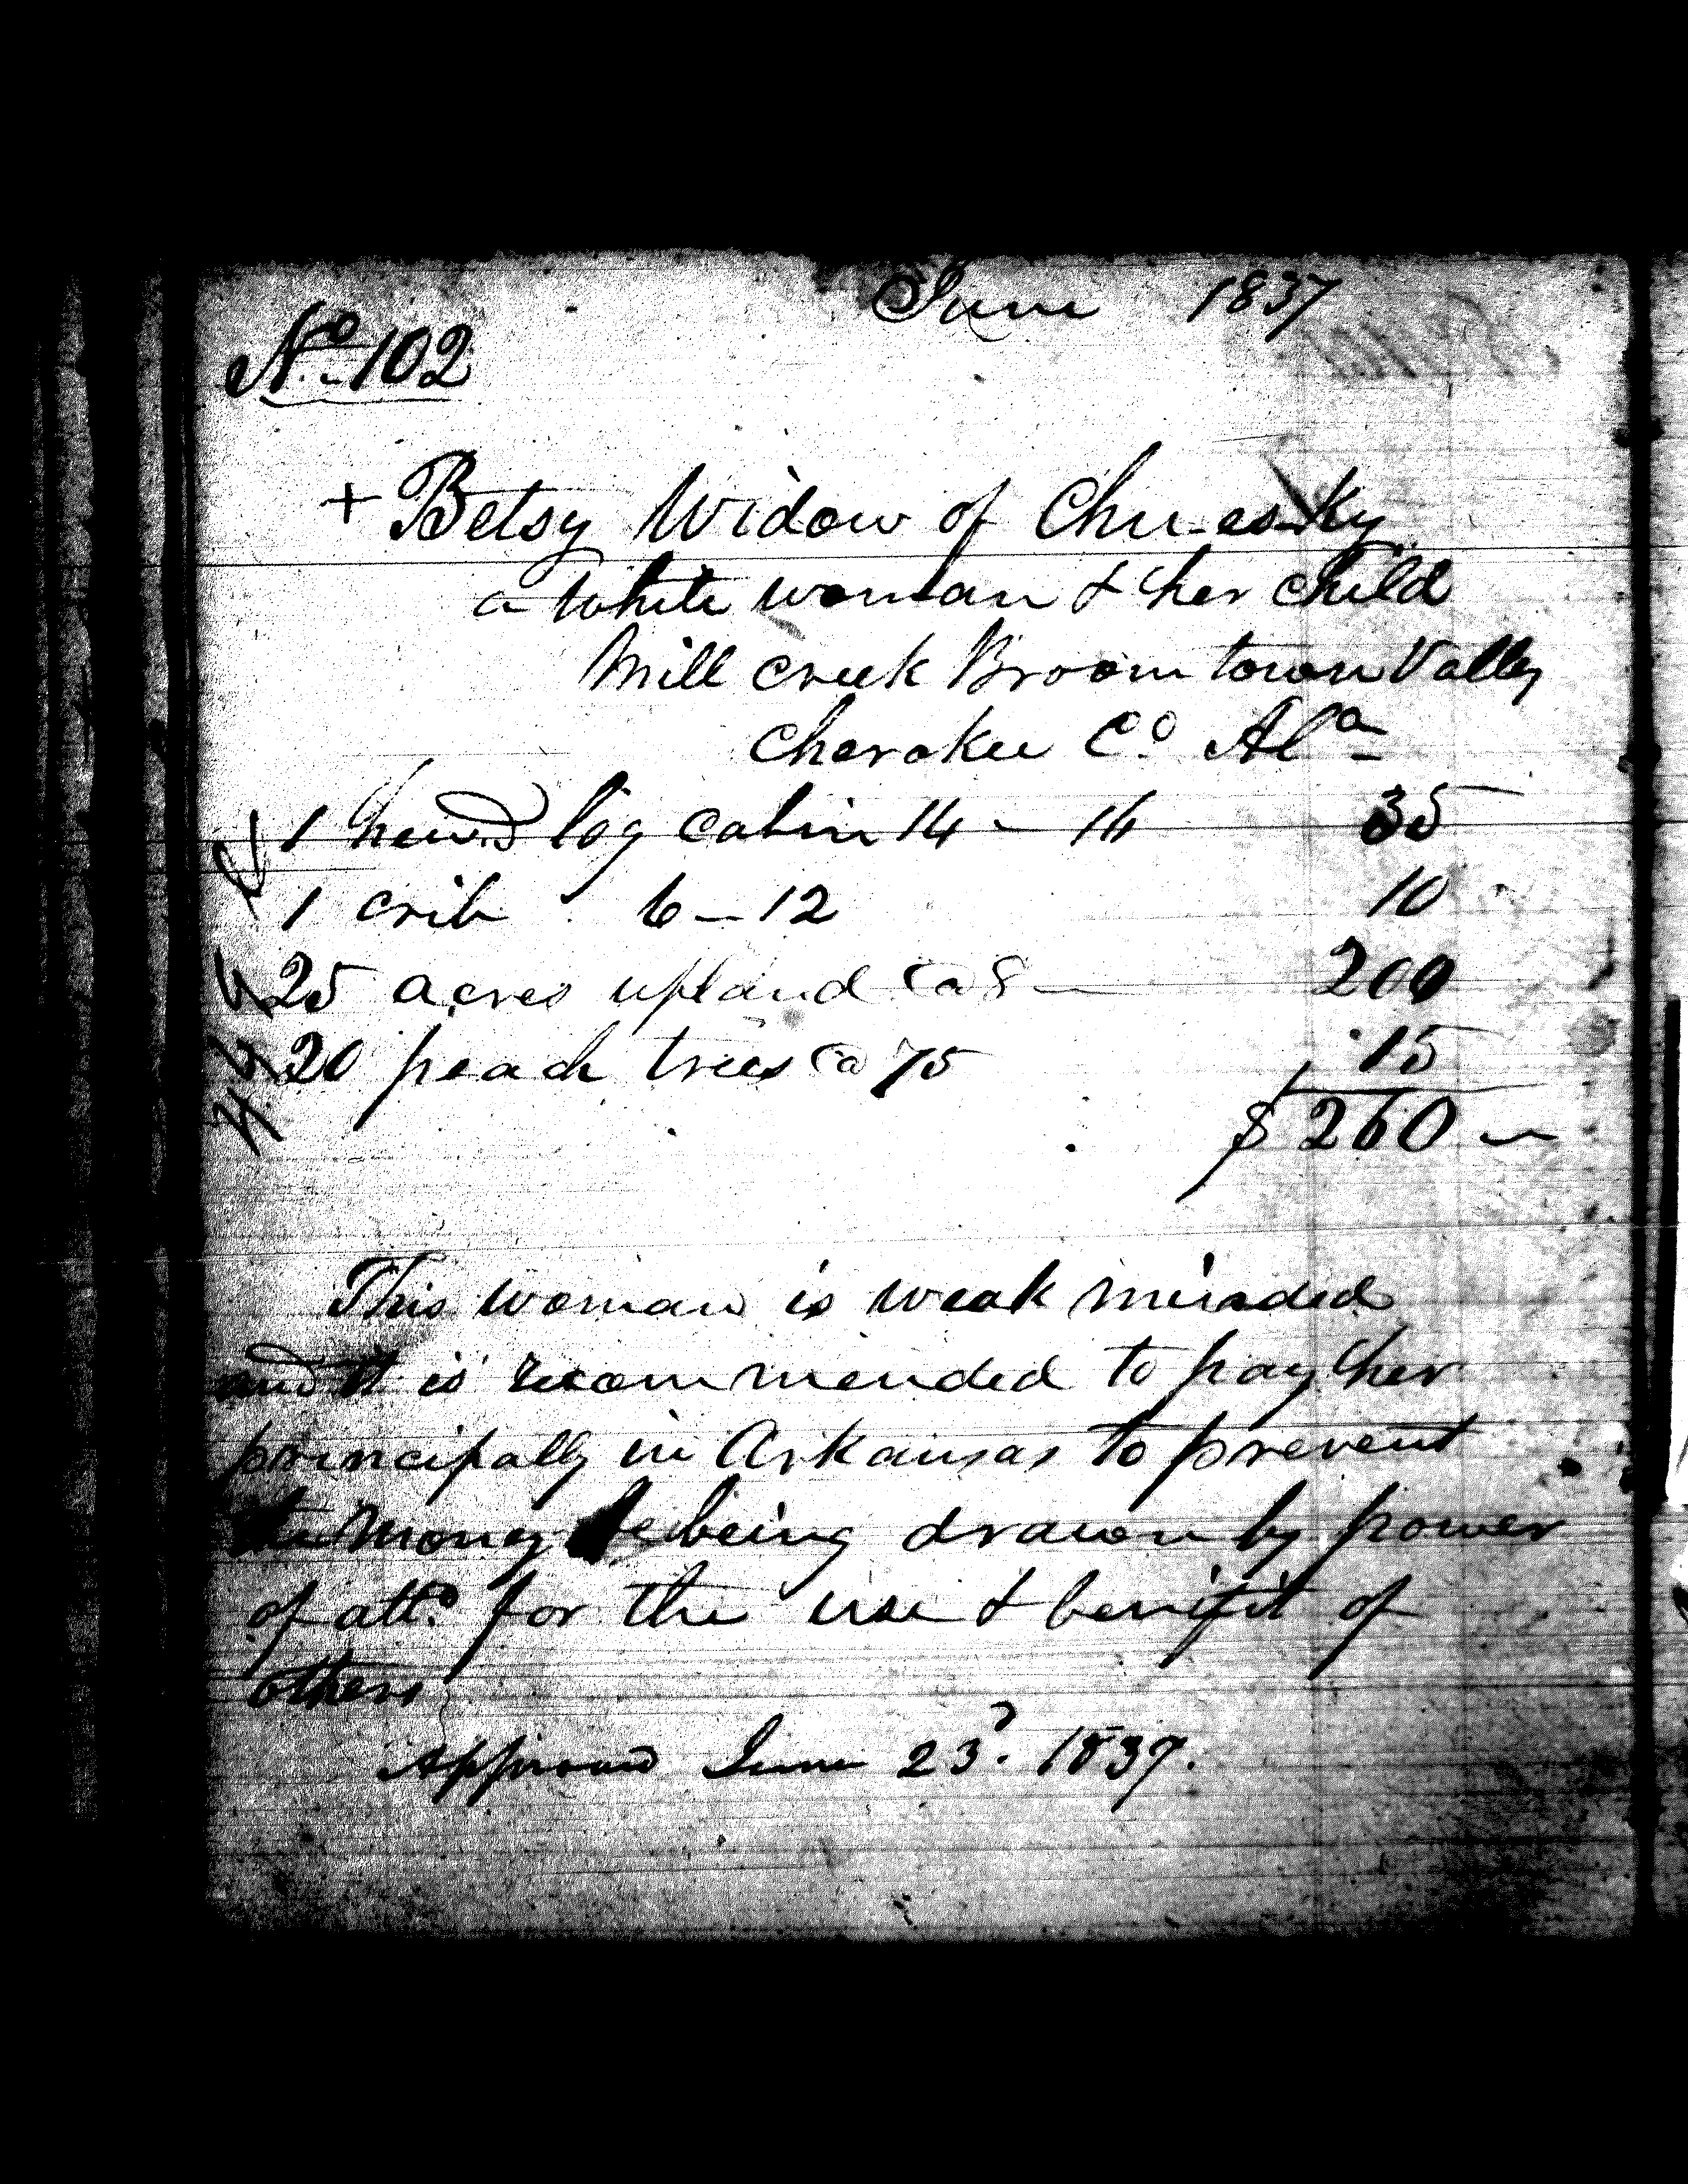 June 1837
No. 102
+ Betsy Widow of Chu-es-Ky
a White woman & her child
Mill creek Broom town Valley
Cherokee Co. Ala
1 hewd log cabin 14 - 16 35
1 crib 6 - 12 10
25 acres upland @ 8 — 200
20 peach trees @ 75 15
$ 260
This woman is weak minded
and it is recommended to pay her
principally in Arkansas to prevent
the money being drawn by power
of atto. for the use & benifit of
others
Approved June 23d. 1837.